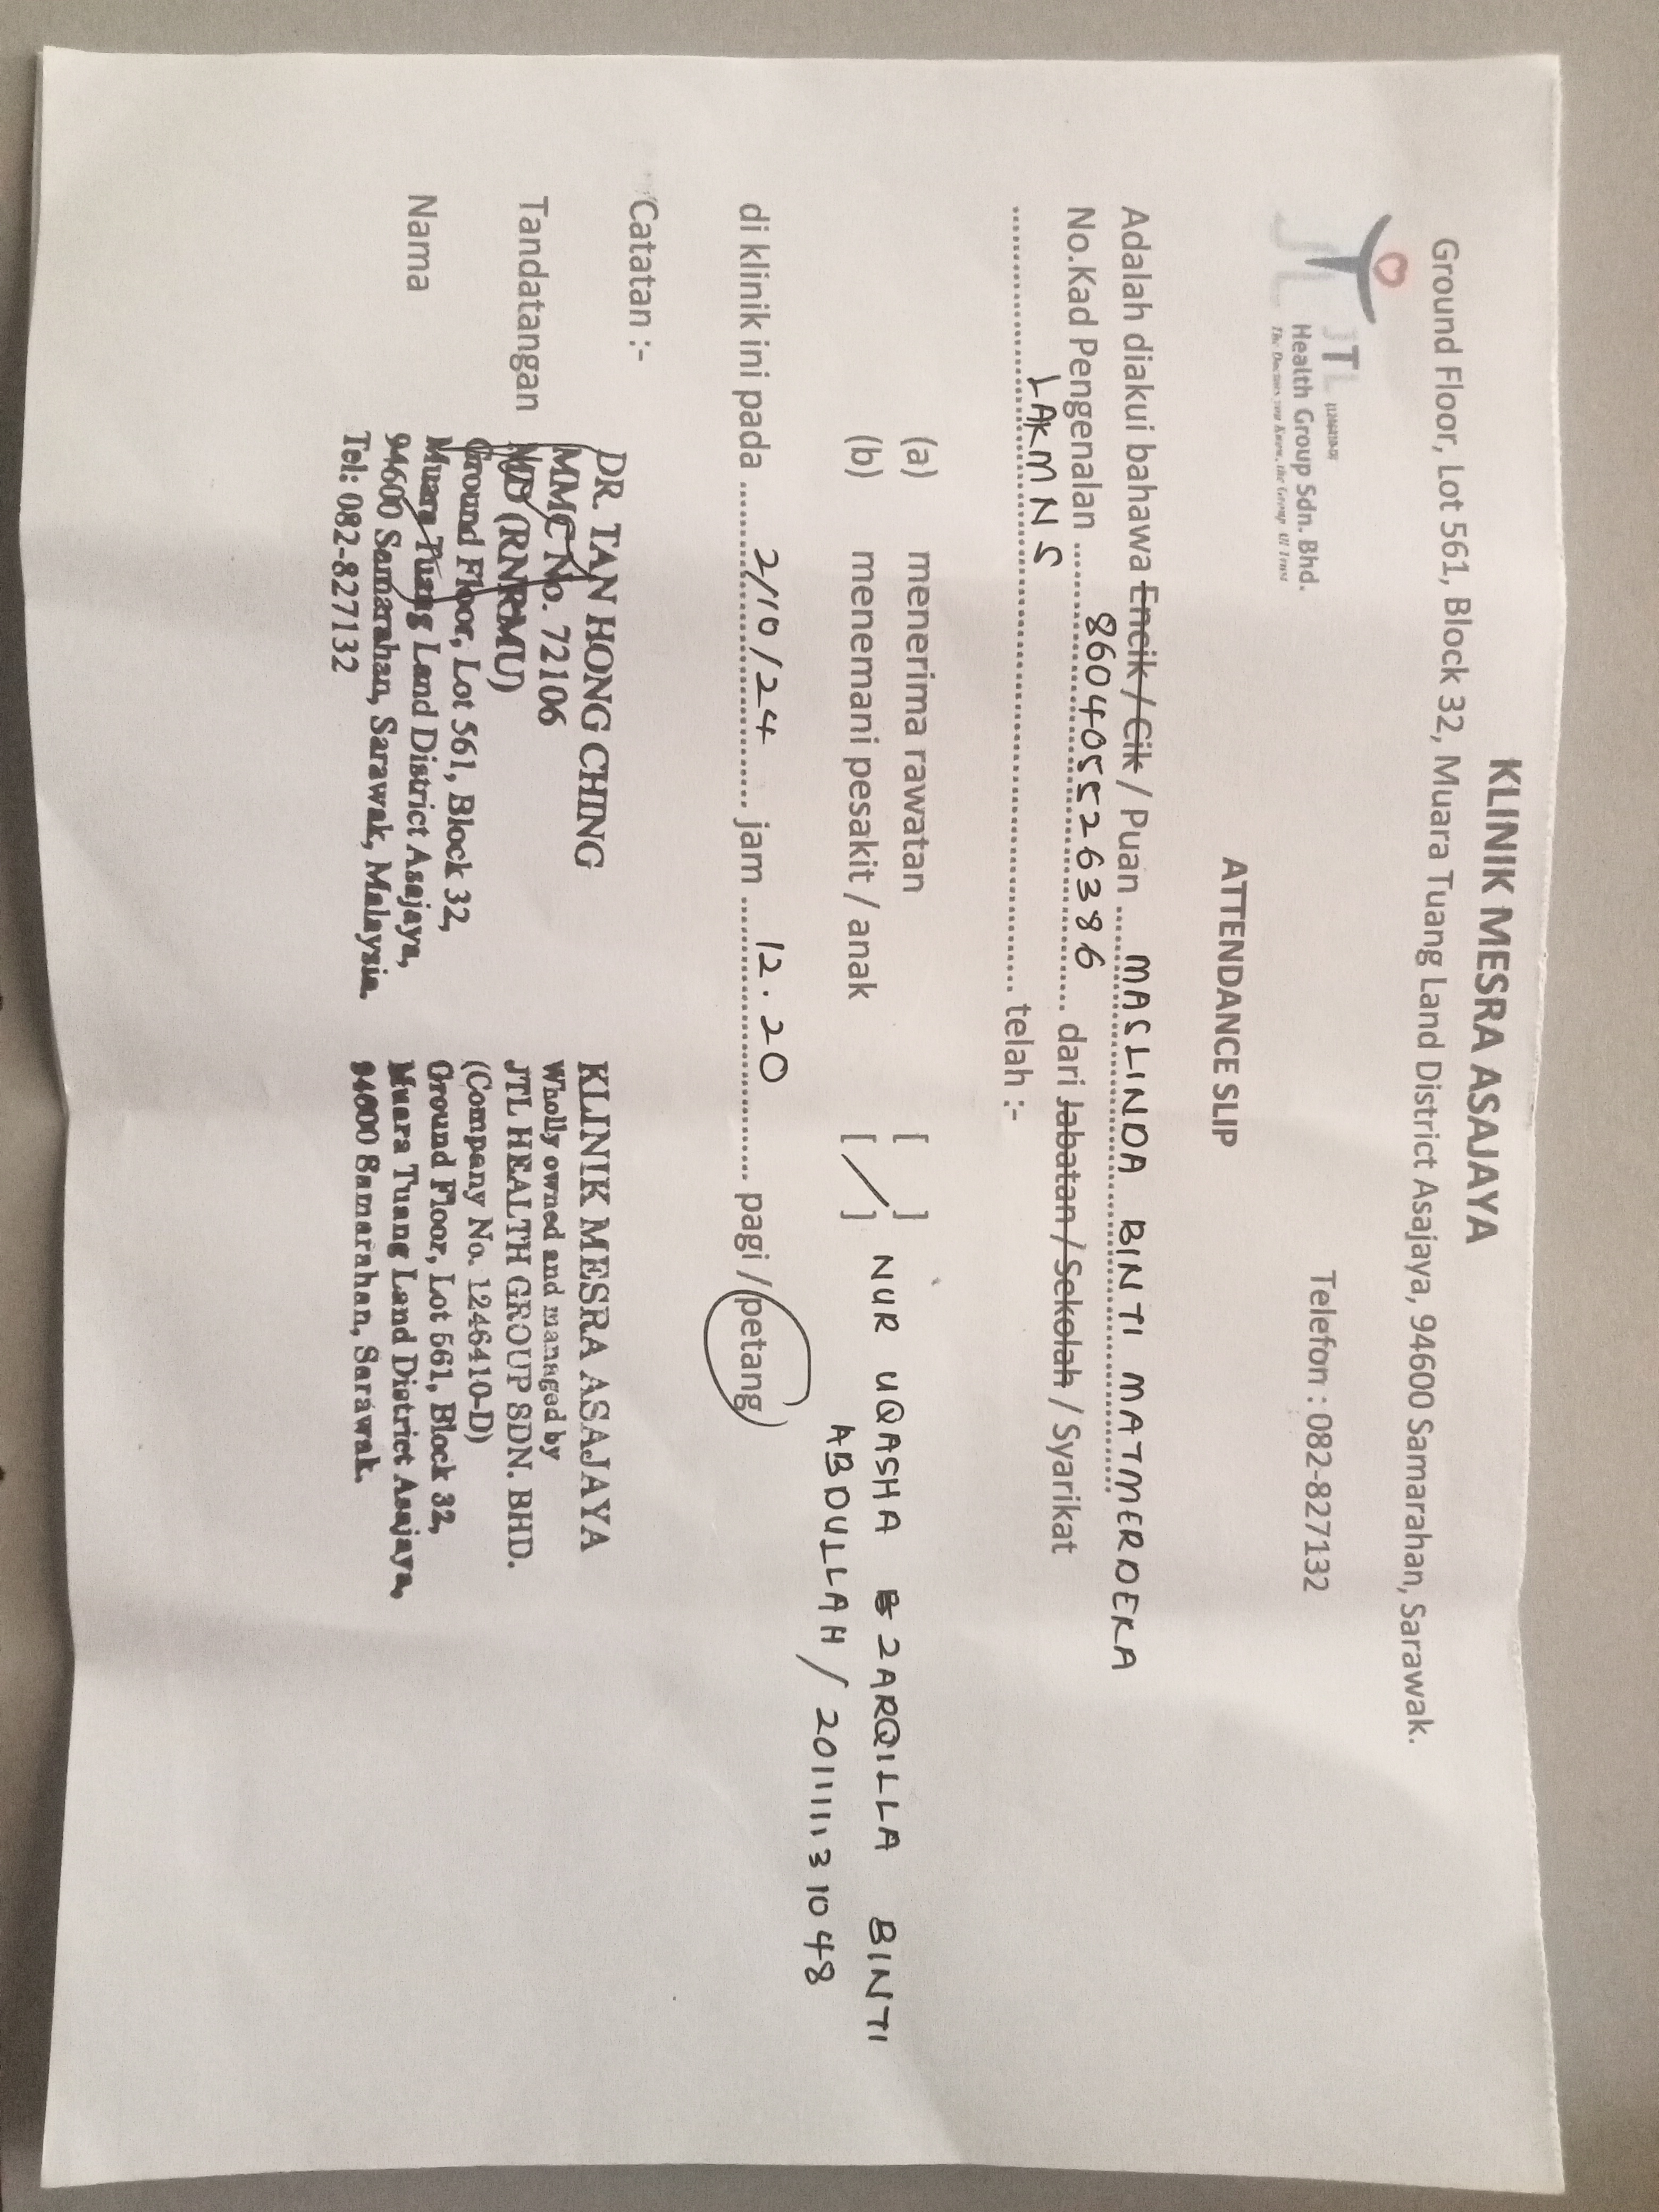 KLINIK MESRA ASAJAYA
Ground Floor, Lot 561, Block 32, Muara Tuang Land District Asajaya, 94600 Samarahan, Sarawak.
JTL (1246410-D)
Health Group Sdn. Bhd.
The Doctors you Know, the Group U Trust
Telefon : 082-827132
ATTENDANCE SLIP
Adalah diakui bahawa Encik / Cik / Puan MASLINDA BINTI MATMERDEKA
No.Kad Pengenalan 860405526386 dari Jabatan / Sekolah / Syarikat
LAKMNS telah :-
(a) menerima rawatan [ ]
(b) menemani pesakit / anak [ / ] NUR UQASHA ZARQILLA BINTI
ABDULLAH / 201111131048
di klinik ini pada 2/10/24 jam 12.20 pagi / petang
Catatan :-
Tandatangan
Nama
DR. TAN HONG CHING
MMC No. 72106
MD (RNRMU)
Ground Floor, Lot 561, Block 32,
Muara Tuang Land District Asajaya,
94600 Samarahan, Sarawak, Malaysia.
Tel: 082-827132
KLINIK MESRA ASAJAYA
Wholly owned and managed by
JTL HEALTH GROUP SDN. BHD.
(Company No. 1246410-D)
Ground Floor, Lot 561, Block 32,
Muara Tuang Land District Asajaya,
94600 Samarahan, Sarawak.